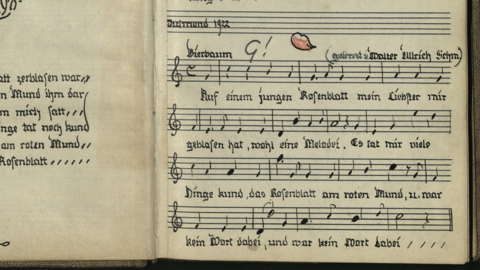 att zerblasen war,,
n Mund ihm dar
on mich satt,,,
inge tat noch kund
am roten Mund,,
Rosenblatt ,,,,,
1922
Bierbaum G! (gelernt v. Walter Ullrich Sehm)
Auf einem jungen Rosenblatt mein Liebster mir
geblasen hat, wohl eine Melodei. Es tat mir viele
Dinge kund, das Rosenblatt am roten Mund, u. war
kein Wort dabei, und war kein Wort dabei ,,,,